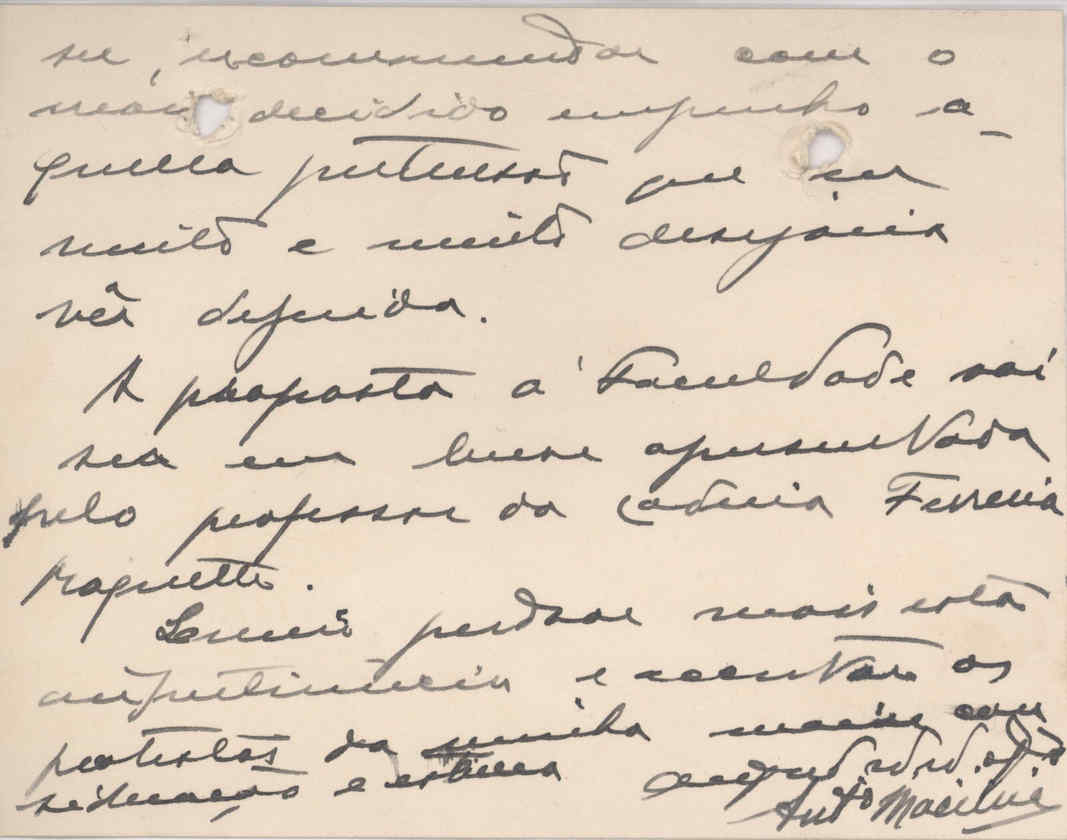 se, recommendar com o
maior decidido empenho a-
quella pretensão que eu
muito e muito desejaria
vêr deferida.
A proposta á Faculdade vai
ser em breve apresentada
pelo professor da cadeira Ferreira
Roquette.
perdoar mais esta
impertinencia e acceitar os
protestos da minha maior con
sideração e estima
Antº Maciei